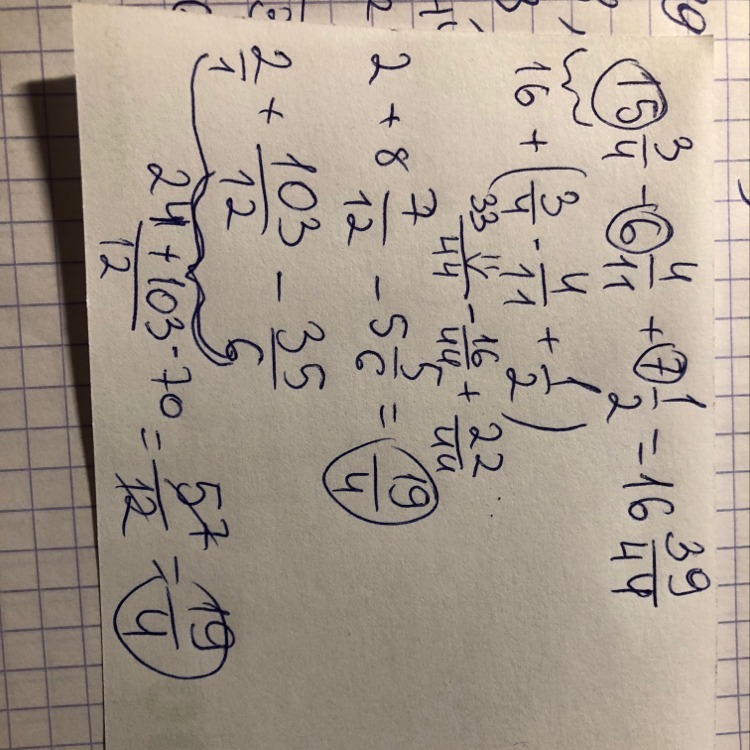 15 3/4 - 6 4/11 + 7 1/2 = 16 39/44
16 + (3/4 - 4/11 + 1/2)
33/44 - 16/44 + 22/44
2 + 8 7/12 - 5 5/6 = 19/4
2/1 + 103/12 - 35/6
24 + 103 - 70/12 = 57/12 = 19/4